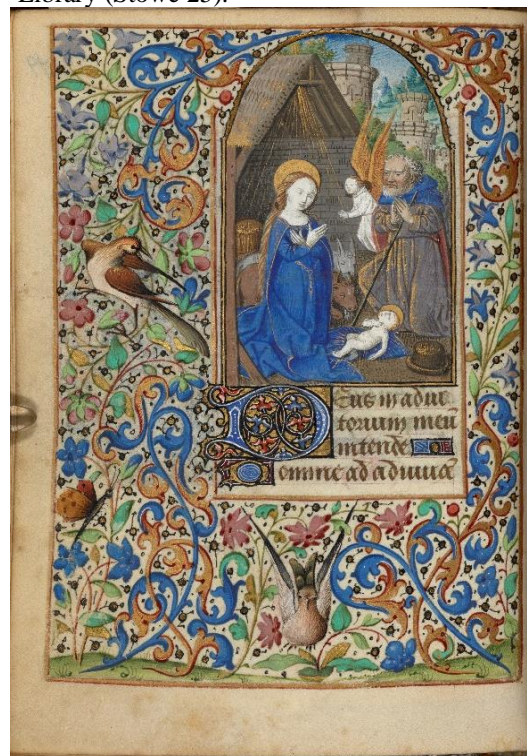 Library (Stowe 25).
Deus in adiu
torium meū
intende
Domine ad adiuuā